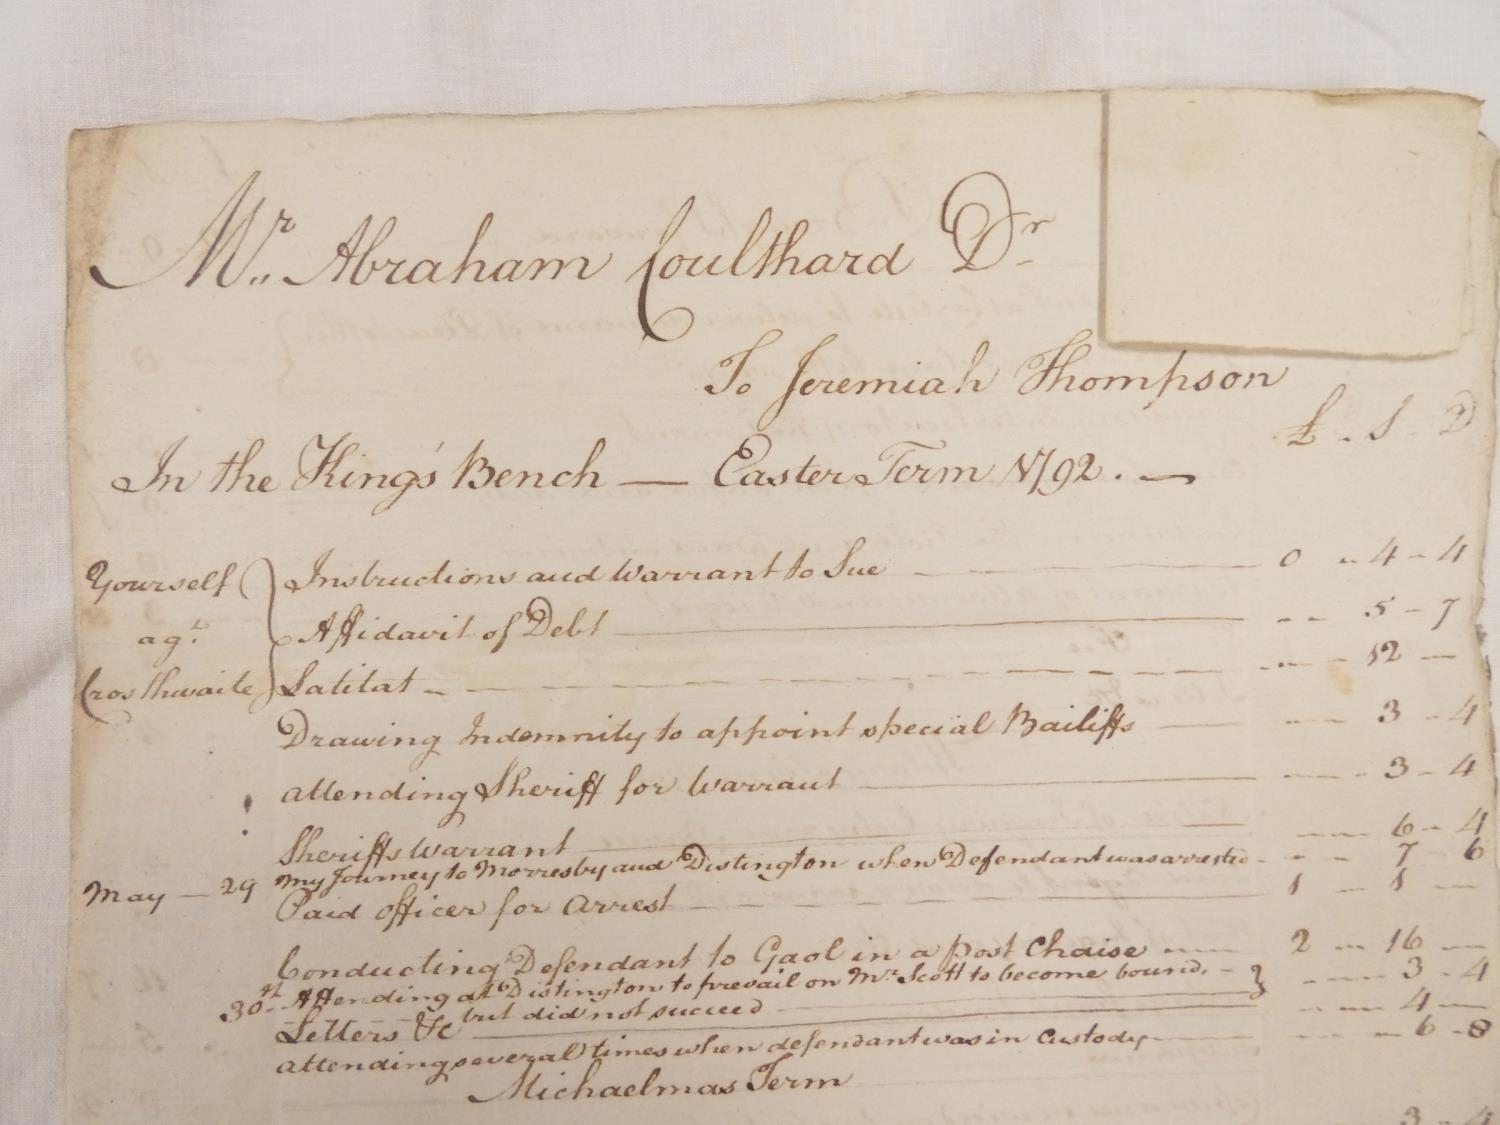 Mr. Abraham Coulthard Dr
To Jeremiah Thompson
£ - S - D
In the King's Bench — Easter Term 1792. —
Yourself agt. Crosthwaite
Instructions and Warrant to Sue — 0 - 4 - 4
Affidavit of Debt — - - 5 - 7
Latitat - - - - 12 -
Drawing Indemnity to appoint special Bailiffs — - 3 - 4
attending Sheriff for Warrant — - 3 - 4
Sheriffs Warrant — - 6 - 4
May — 29 My Journey to Morresby and Distington when Defendant was arrested - - 7 - 6
Paid officer for arrest - - - 1 - 1 -
Conducting Defendant to Gaol in a post Chaise - - 2 - 16 -
30th Attending at Distington to prevail on Mr Scott to become bound, - - 3 - 4
but did not succeed
Letters &c — - 4 -
attending several times when defendant was in Custody — - 6 - 8
Michaelmas Term
3 - 4